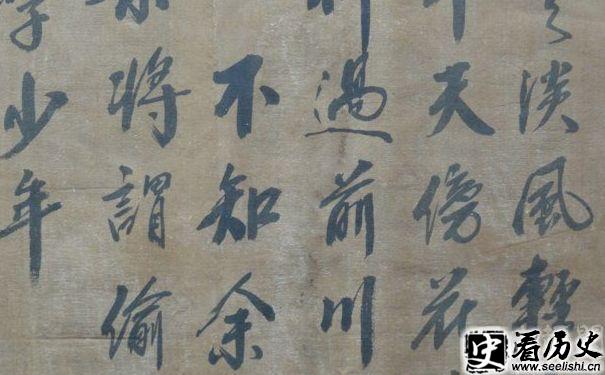 淡風輕
天傍花
過前川
不知余
將謂偷
少年
史 看历史
www.seelishi.cn